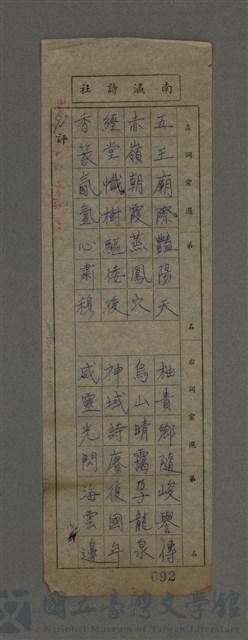 社詩瀛南
左詞宗選第　名右詞宗選第　名
五王廟際豔陽天　柚貴鄉隨峻譽傳
赤嶺朝霞蒸鳳穴　烏山晴靄孕龍泉
經堂懺樹驅倭後　神域詩賡復國年
香篆氤氳心肅穆　威靈光閃海雲邊
評
092
國立臺灣文學館
National Museum of Taiwan Literature